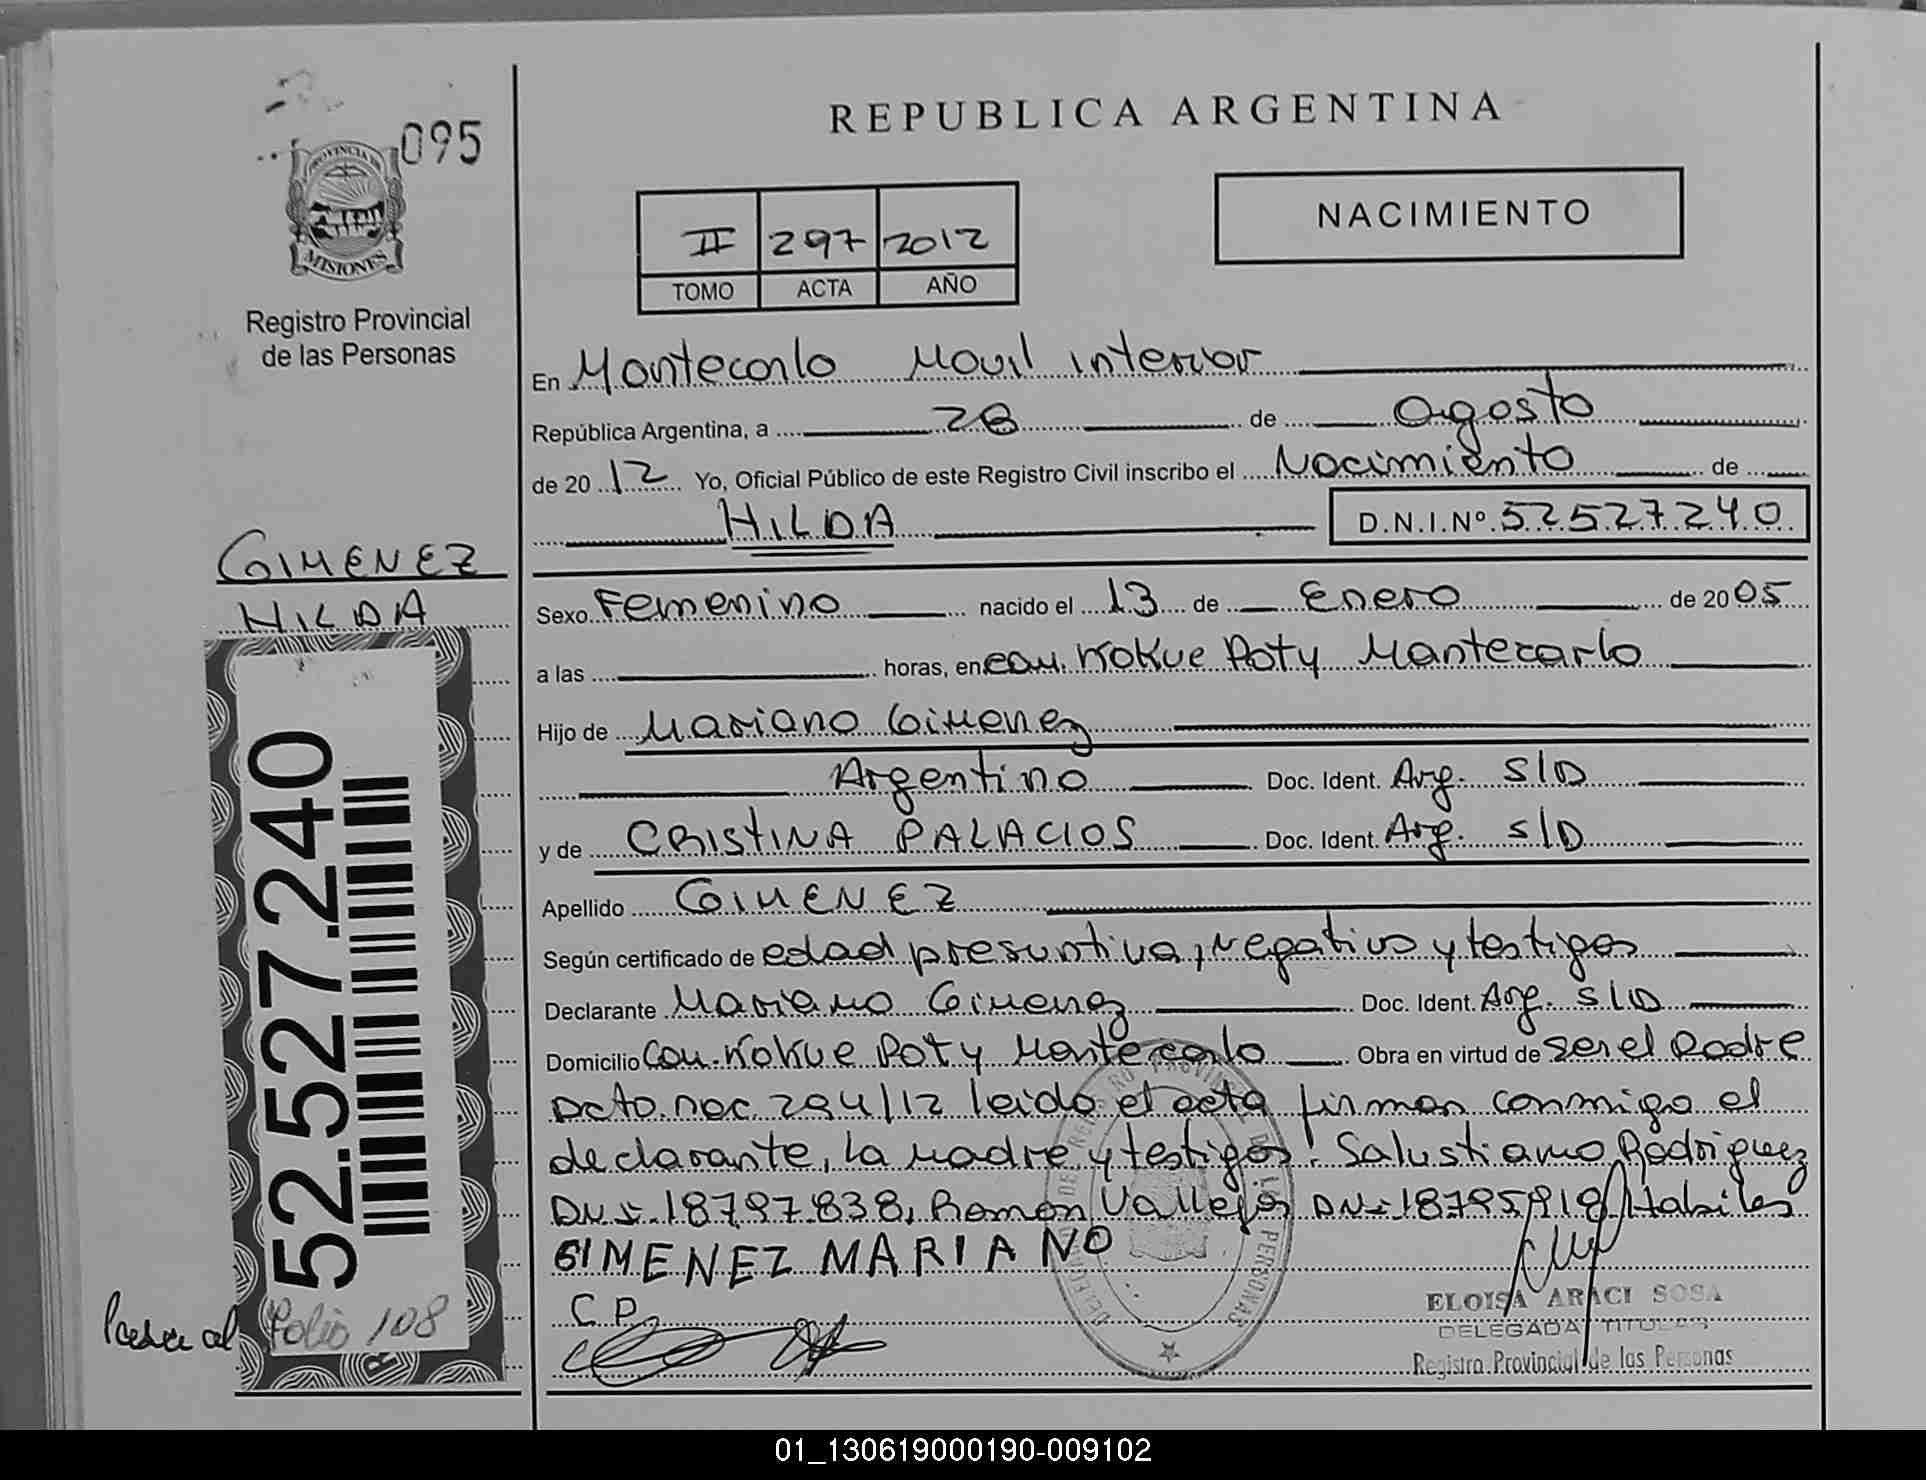 095
PROVINCIA DE
MISIONES
Registro Provincial
de las Personas
REPUBLICA ARGENTINA
NACIMIENTO
II 297 2012
TOMO ACTA AÑO
En Montecarlo Movil interior
República Argentina, a 28 de agosto
de 20 12 Yo, Oficial Público de este Registro Civil inscribo el Nacimiento de
HILDA D.N.I.Nº 52527240
GIMENEZ
HILDA
Sexo Femenino nacido el 13 de Enero de 20 05
a las horas, en com. Kokue Poty Montecarlo
Hijo de Mariano Gimenez
Argentino Doc. Ident. Arg. S/D
y de CRISTINA PALACIOS Doc. Ident. Arg. S/D
Apellido GIMENEZ
Según certificado de edad presuntiva, negativo y testigos
Declarante Mariano Gimenez Doc. Ident. Arg. S/D
Domicilio Com. Kokue Poty Montecarlo Obra en virtud de ser el Padre
Dcto. nac. 294/12 leido el acta firman conmigo el
declarante, la madre y testigos: Salustiano Rodriguez
DNI. 18797.838, Ramon Vallejos DNI 18795918 Habiles
GIMENEZ MARIANO
C.P.
52.527.240
Pasa al Folio 108
DELEGACION DE REGISTRO PROVINCIAL DE LAS PERSONAS
ELOISA ARACI SOSA
DELEGADA TITULAR
Registro Provincial de las Personas
01_130619000190-009102